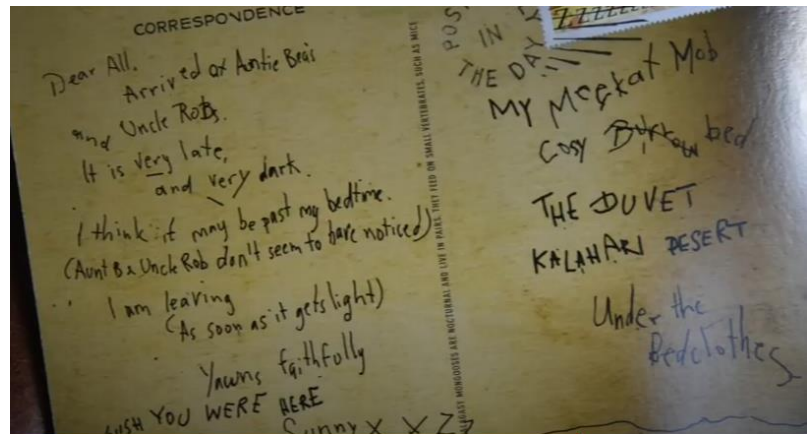 CORRESPONDENCE
Dear All.
Arrived at Auntie Bea's
and Uncle Rob's.
It is very late,
and very dark.
I think it may be past my bedtime.
(Aunt B & Uncle Rob don't seem to have noticed)
I am leaving
(As soon as it gets light)
Yawns faithfully
WISH YOU WERE HERE
Sunny X X Z z
MONGOOSES ARE NOCTURNAL AND LIVE IN PAIRS. THEY FEED ON SMALL VERTEBRATES, SUCH AS MICE
POST
IN
THE DAY
ZZZZZZ
MY Meerkat Mob
COSY Burrow bed
THE DUVET
KALAHARI DESERT
Under the
Bedclothes